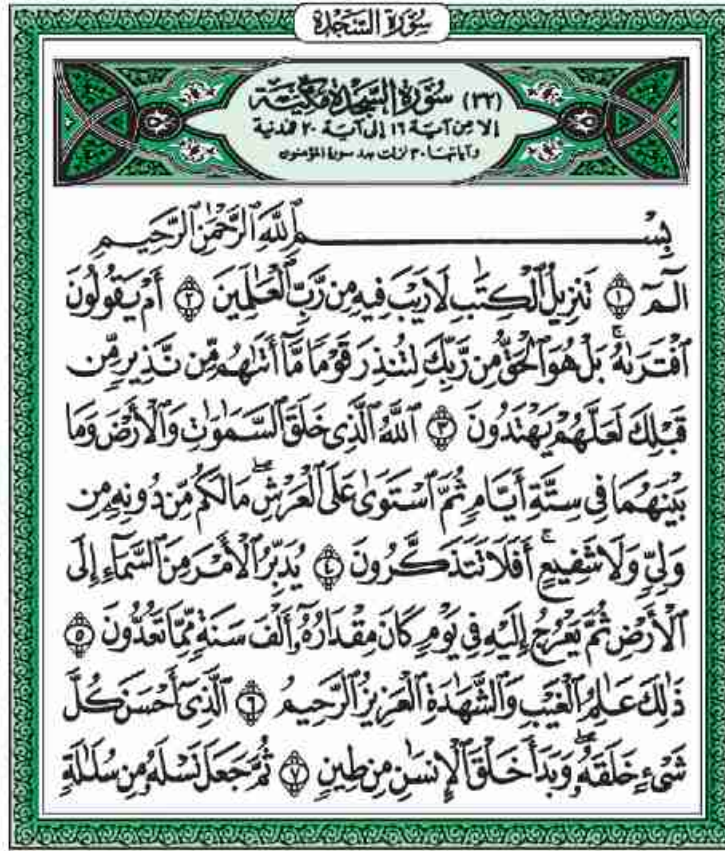 سُورَةُ السَّجْدَةِ
(٣٢) سُورَةُ السَّجْدَةِ مَكِّيَّة
إلا من آية ١٦ إلى آية ٢٠ فمدنية
وآياتها ٣٠ نزلت بعد سورة المؤمنون
بِسْمِ ٱللَّهِ ٱلرَّحْمَٰنِ ٱلرَّحِيمِ
الٓمٓ ١ تَنزِيلُ ٱلْكِتَٰبِ لَا رَيْبَ فِيهِ مِن رَّبِّ ٱلْعَٰلَمِينَ ٢ أَمْ يَقُولُونَ
ٱفْتَرَىٰهُ ۚ بَلْ هُوَ ٱلْحَقُّ مِن رَّبِّكَ لِتُنذِرَ قَوْمًا مَّآ أَتَىٰهُم مِّن نَّذِيرٍ مِّن
قَبْلِكَ لَعَلَّهُمْ يَهْتَدُونَ ٣ ٱللَّهُ ٱلَّذِى خَلَقَ ٱلسَّمَٰوَٰتِ وَٱلْأَرْضَ وَمَا
بَيْنَهُمَا فِى سِتَّةِ أَيَّامٍ ثُمَّ ٱسْتَوَىٰ عَلَى ٱلْعَرْشِ ۖ مَا لَكُم مِّن دُونِهِۦ مِن
وَلِىٍّ وَلَا شَفِيعٍ ۚ أَفَلَا تَتَذَكَّرُونَ ٤ يُدَبِّرُ ٱلْأَمْرَ مِنَ ٱلسَّمَآءِ إِلَى
ٱلْأَرْضِ ثُمَّ يَعْرُجُ إِلَيْهِ فِى يَوْمٍ كَانَ مِقْدَارُهُۥٓ أَلْفَ سَنَةٍ مِّمَّا تَعُدُّونَ ٥
ذَٰلِكَ عَٰلِمُ ٱلْغَيْبِ وَٱلشَّهَٰدَةِ ٱلْعَزِيزُ ٱلرَّحِيمُ ٦ ٱلَّذِىٓ أَحْسَنَ كُلَّ
شَىْءٍ خَلَقَهُۥ ۖ وَبَدَأَ خَلْقَ ٱلْإِنسَٰنِ مِن طِينٍ ٧ ثُمَّ جَعَلَ نَسْلَهُۥ مِن سُلَٰلَةٍ